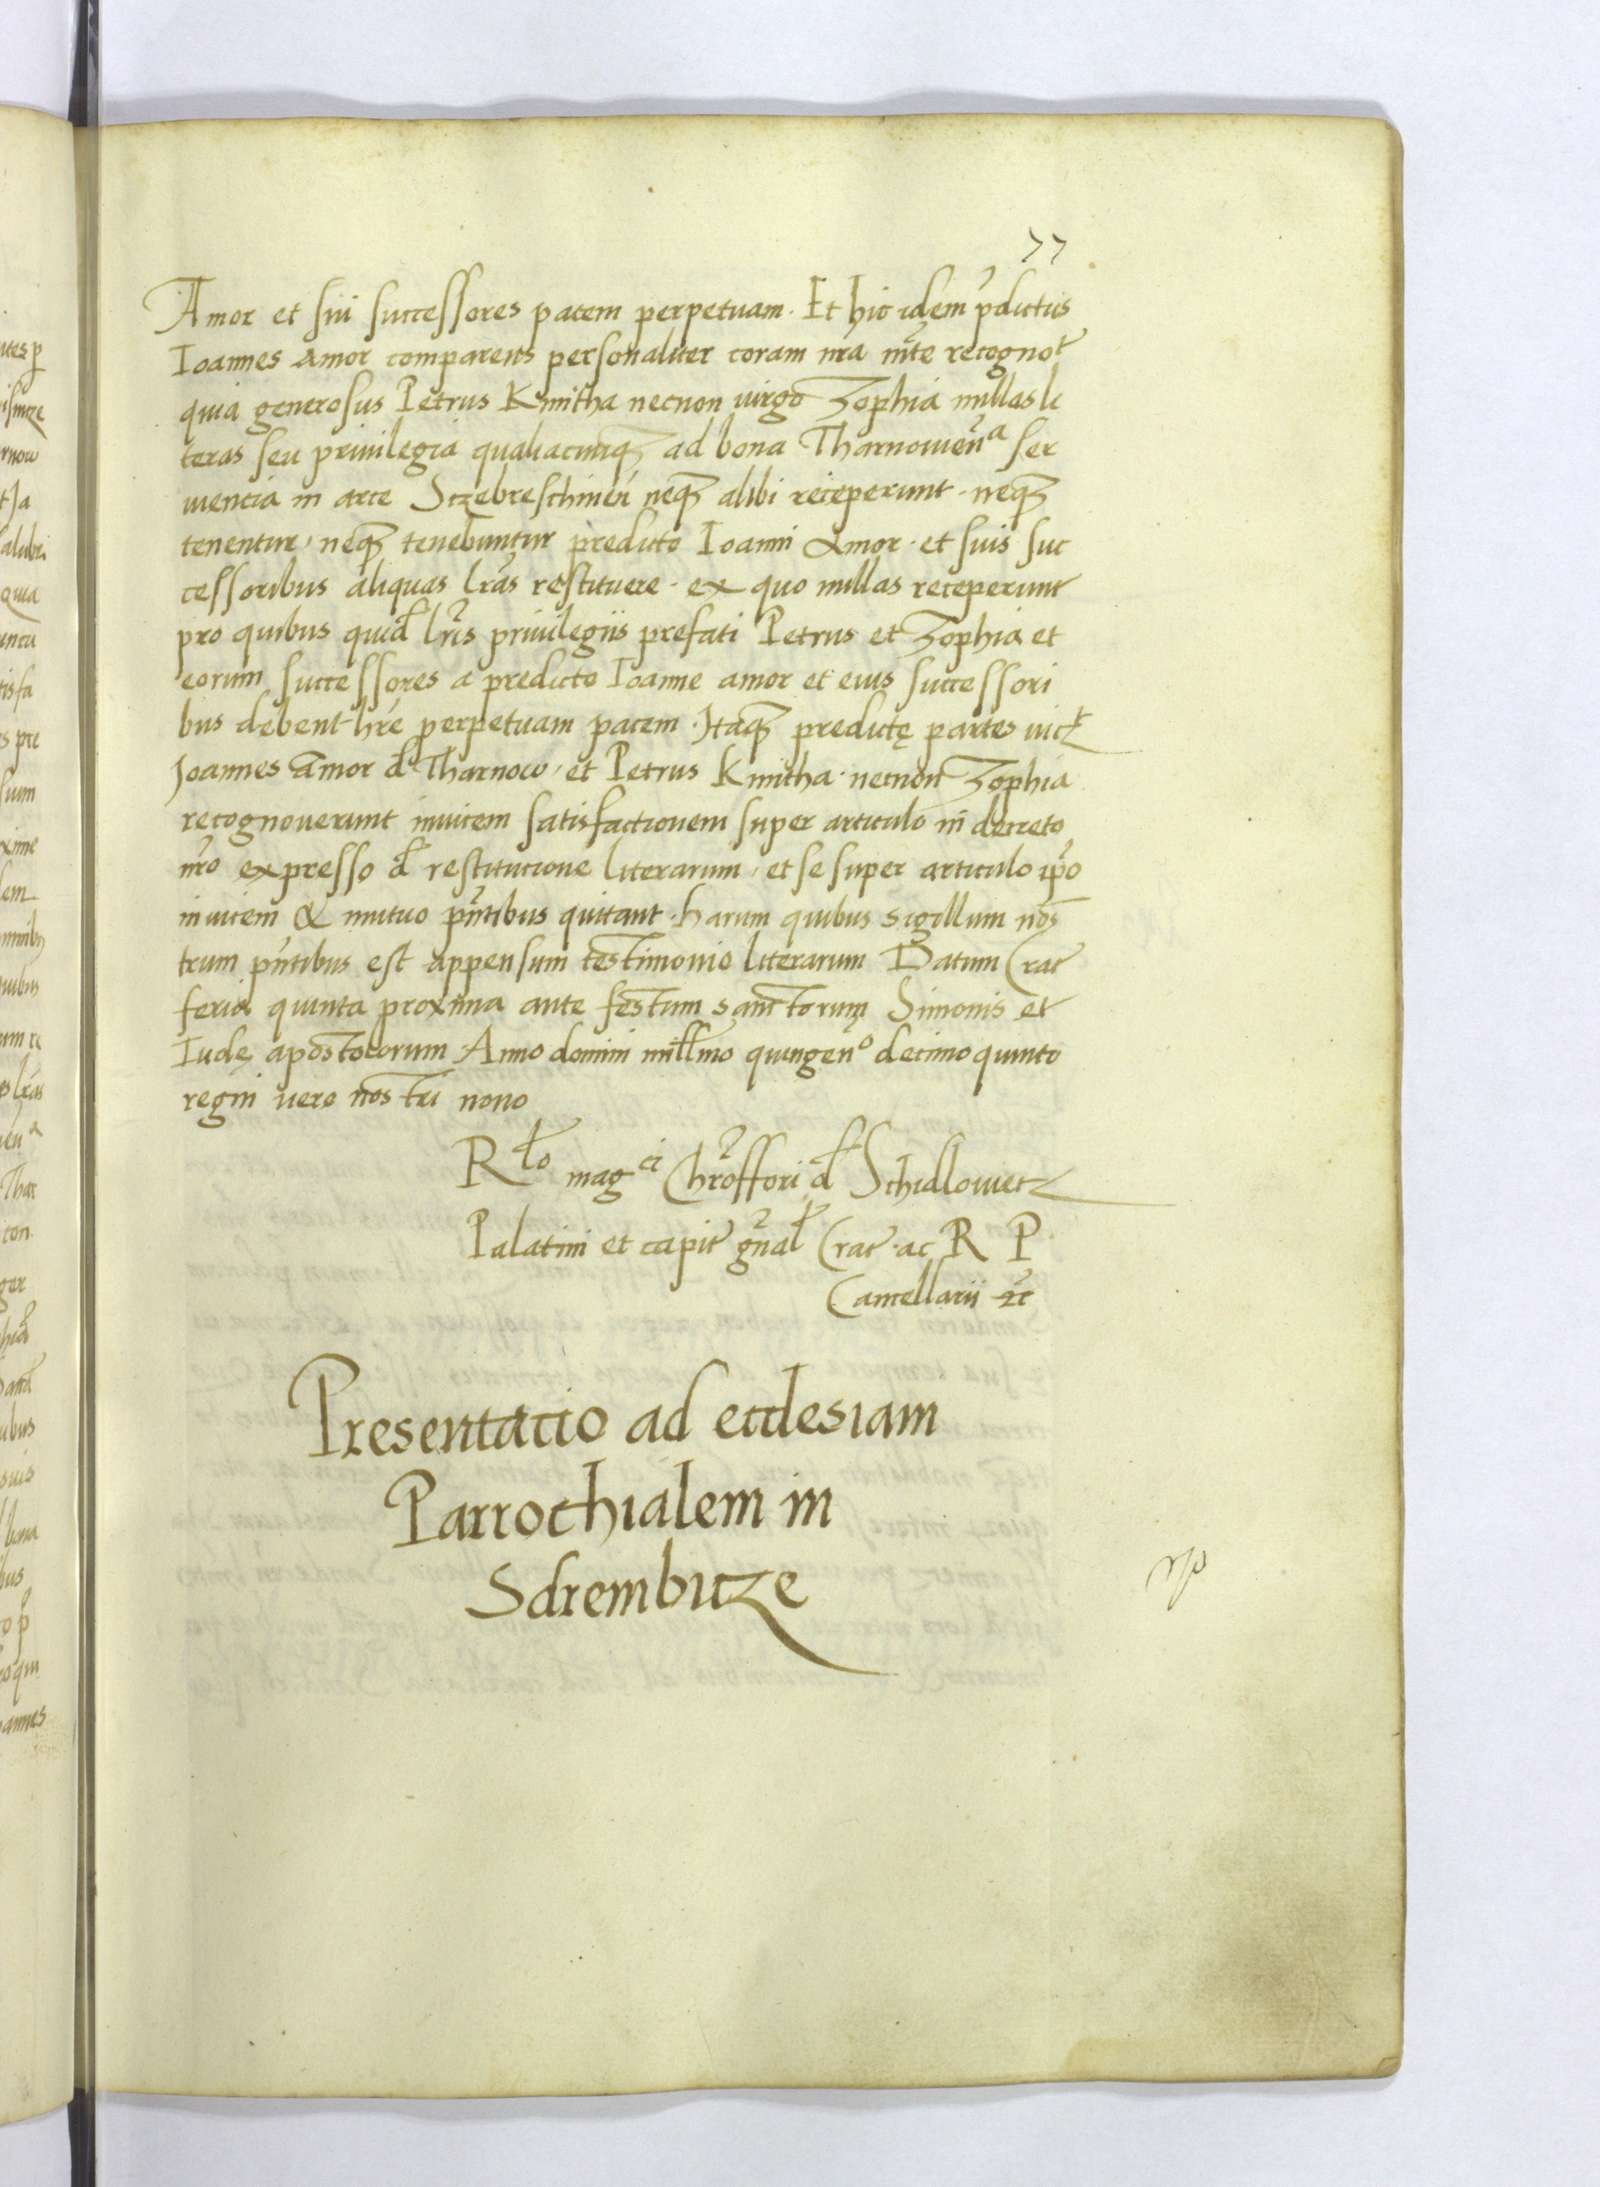 77
Amor et sui successores pacem perpetuam. Et hic idem p̃dictus
Ioannes Amor comparens personaliter coram nr̃a mt̃e recognot̃
quia generosus Petrus Kmitha necnon virgo Zophia nullas li
teras seu privilegia qualiacunqꝫ ad bona Tharnowien̄ᵃ ser
viencia in arce Sczebreschinen̄ neqꝫ alibi receperunt. neqꝫ
tenentur, neqꝫ tenebuntur predicto Ioanni Amor. et suis suc
cessoribus aliquas lr̃as restituere. ex quo nullas receperunt
pro quibus quid̃ lr̃is privilegiis prefati Petrus et Zophia et
eorum successores a predicto Ioanne amor et eius successori
bus debent hr̃e perpetuam pacem. Itaqꝫ predictę partes vicꝫ
Joannes Amor d̃ Tharnow, et Petrus Kmitha. necnon Zophia
recognoverunt invicem satisfactionem super articulo in decreto
nr̃o expresso d̃ restitucione literarum, et se super articulo ip̃o
invicem & mutuo p̃ntibus quitant. harum quibus sigillum nos
trum p̃ntibus est appensum testimonio literarum Datum Crac̃
feria quinta proxima ante festum sanctorum Simonis et
Iudę apostolorum Anno domini millm̃o quingen̄ᵒ decimo quinto
regni vero nostri nono
Rˡᵒ magᶜⁱ Chr̃offori d̃ Schidloviecz
Palatini et capit̃ gñal̃ Crac̃. ac R P
Cancellarii ꝛc̃
Presentacio ad ecclesiam
Parrochialem in
Sdrembicze